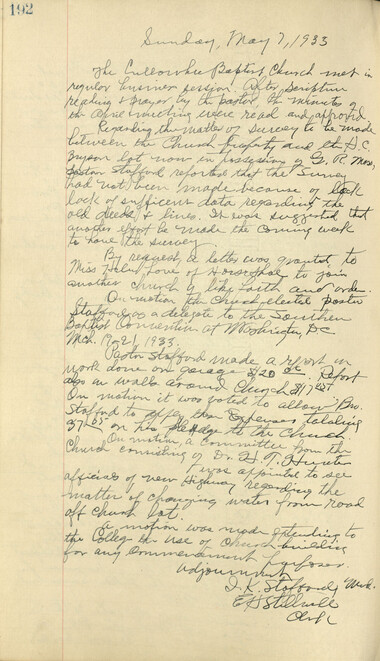 192
Sunday, May 7, 1933
The Cullowhee Baptist Church met in
regular business session. After Scripture
reading & prayer by the pastor, the minutes of
the April meeting were read and approved.
Regarding the matter of survey to be made
between the Church property and the H.C.
Bryson lot now in possession of G. R. Moss,
Pastor Stafford reported that the survey
had not been made because of
lack of sufficent data regarding the
old deeds & lines. It was suggested that
another effort be made the coming week
to have the survey.
By request a letter was granted to
Miss Helen Love of Horse Shoe to join
another church of like faith and order.
On motion the Church elected pastor
Stafford as a delegate to the Southern
Baptist Convention at Washington, D.C.
1933.
Pastor Stafford made a report on
work done on garage $20 Report
also on walls around Church $17
On motion it was voted to allow Bro.
Stafford to apply these expenses totaling
37 on his pledge to the Church.
On motion, a committee from the
Church consisting of Dr. H. T. Hunter
was appointed to see
officials of new Highway regarding the
matter of changing water from road
off Church lot.
A motion was made extending to
the College the use of Church building
for any Commencement purposes.
Adjournment
I. K. Stafford, Mod.
E H Stillwell
Clerk